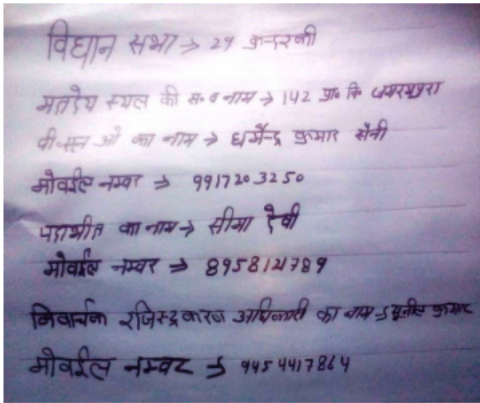 विधान सभा → 29 कुन्दरकी
मतदेय स्थल की स. व नाम → 142 प्रा. वि
वी.एल ओ का नाम → धर्मेन्द्र कुमार सैनी
मोबाईल नम्बर ⇒ 9917203250
पदाभीत का नाम → सीमा देवी
मोबाईल नम्बर ⇒ 8958121789
निर्वाचक रजिस्ट्रकरण अधिकारी का नाम → सुनील कुमार
मोबाईल नम्बर → 9454417864